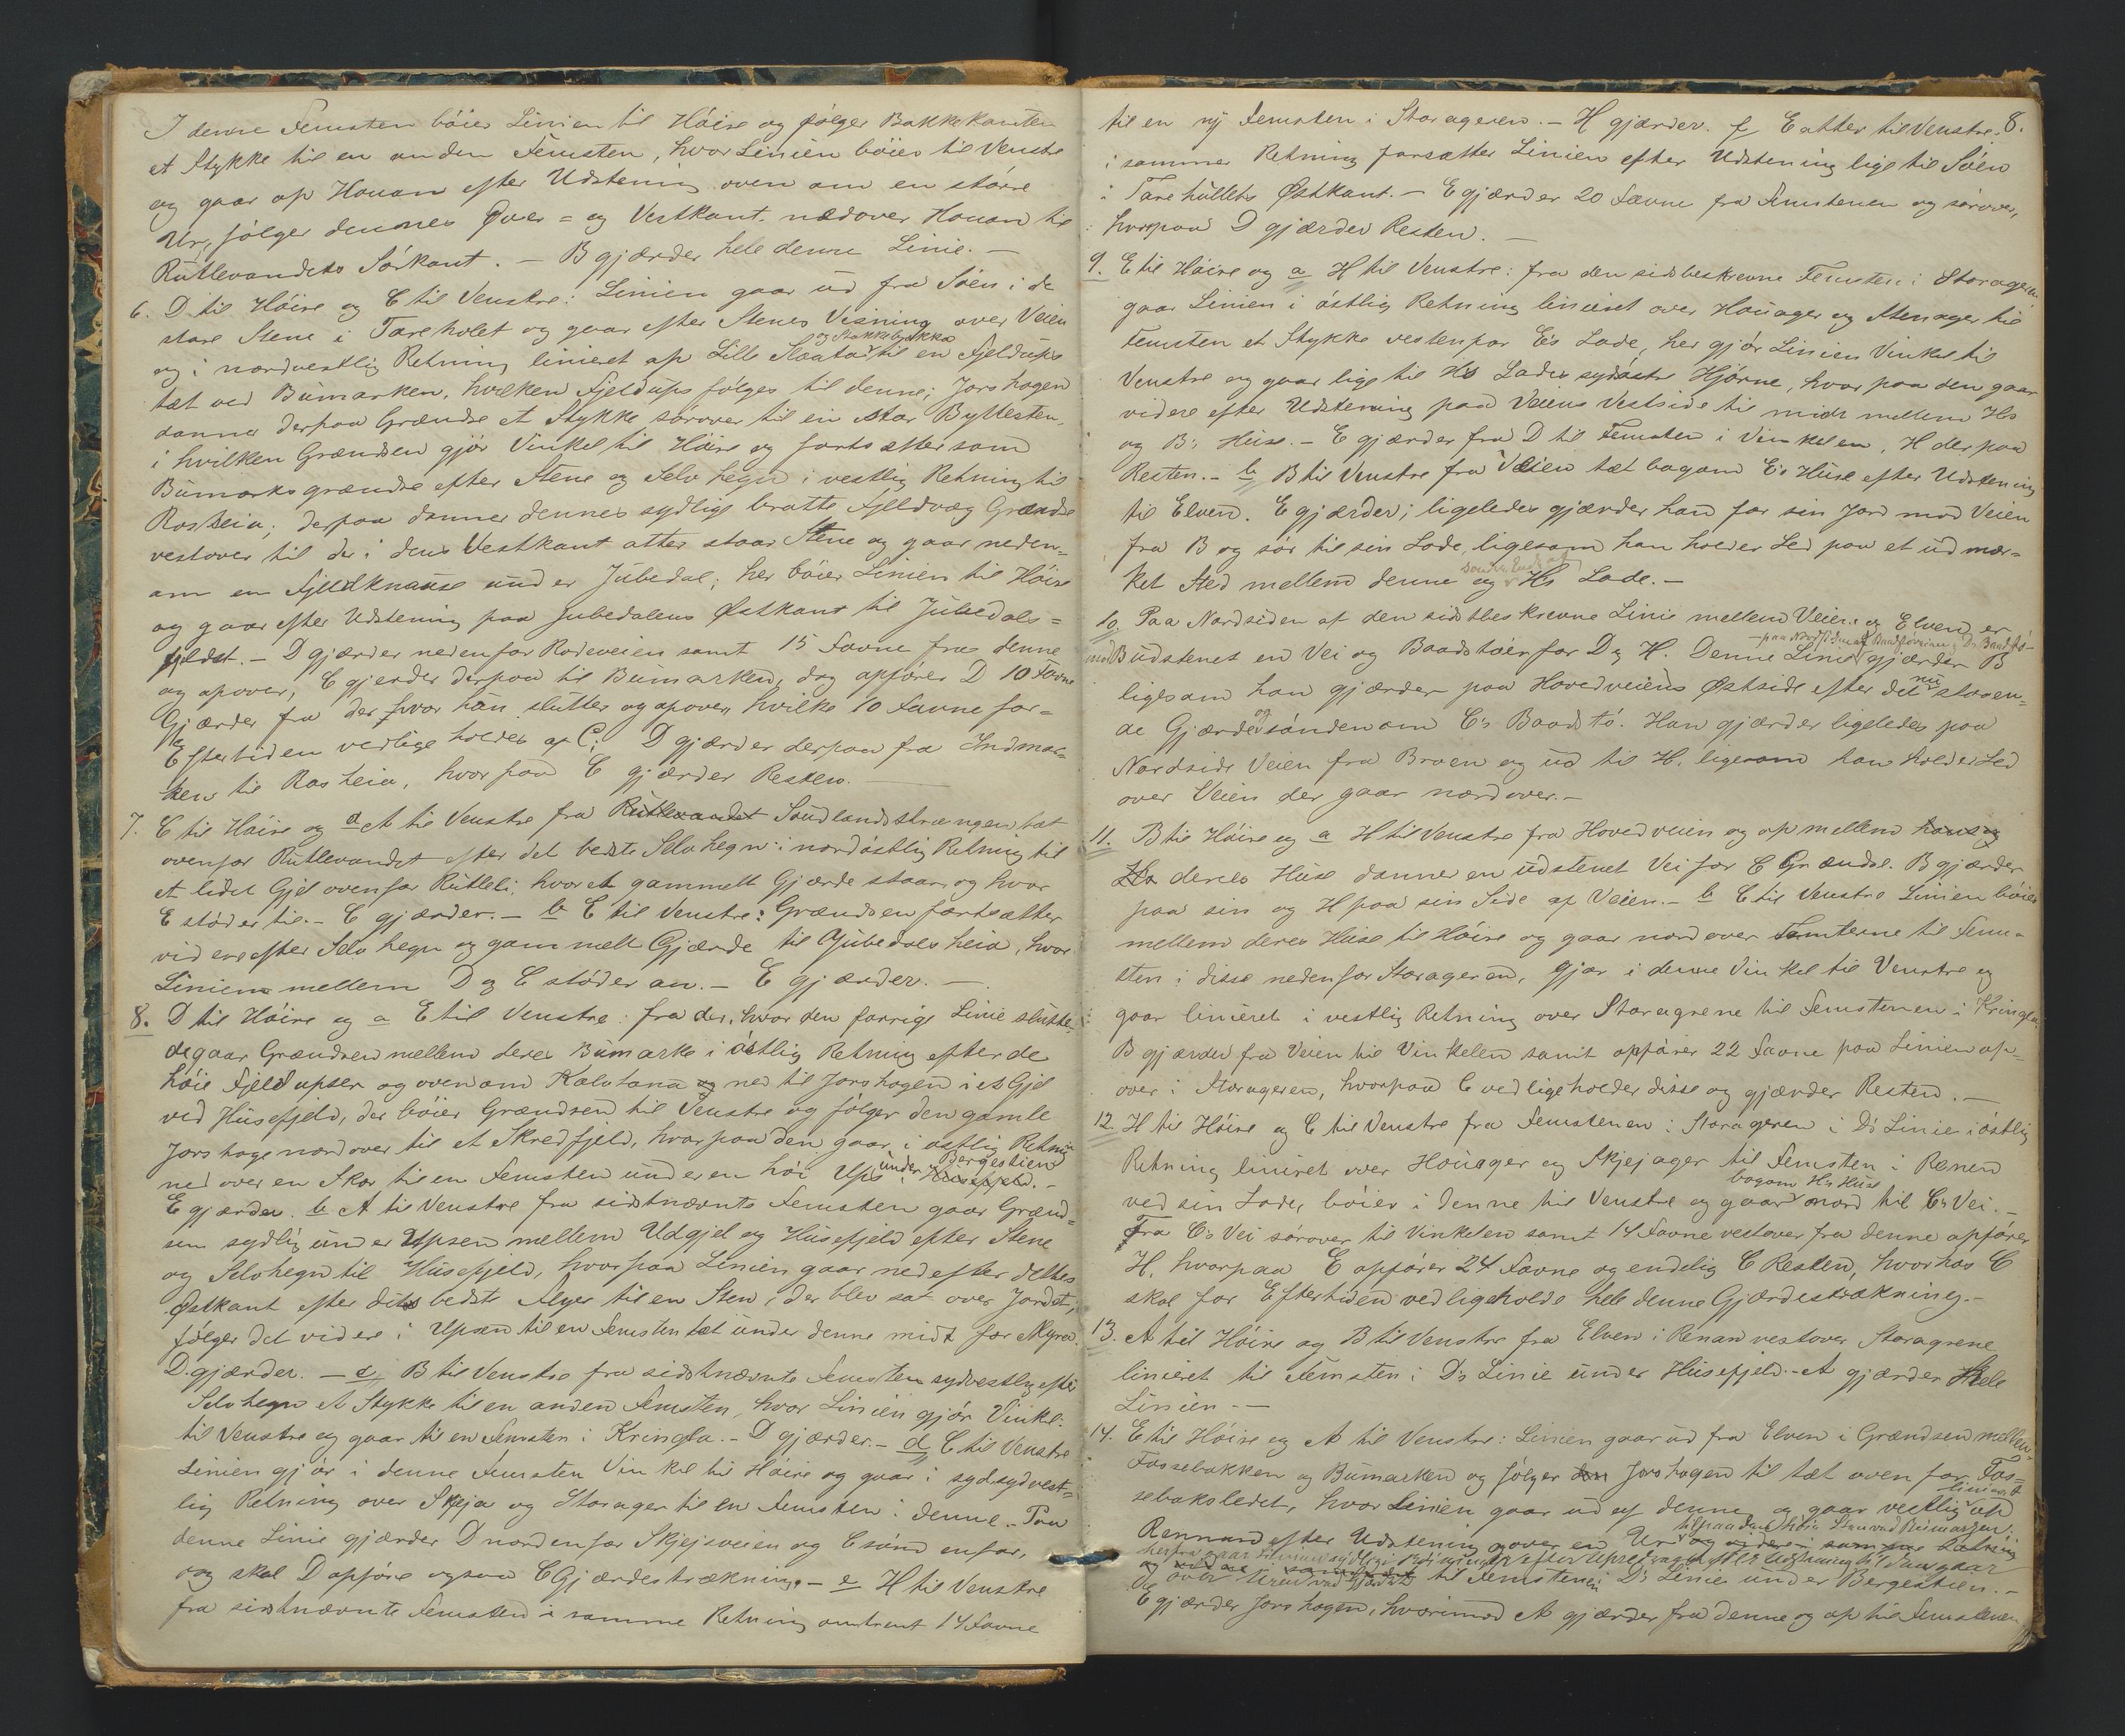 I denne Femsten böier Linien til Höire og fölger Bakkekanten
et Stykke til en anden Femsten, hvor Linien böies til Venstre
og gaar op Houan efter Udstening oven om en större
Ur, fölger dennes Över- og Vestkant nedover Houan til
Rutlevandets Sörkant. – B gjærder hele denne Linie. –
6. D til Höire og C til Venstre: Linien gaar ud fra Söen i de
store Stene i Tareholet og gaar efter Stenes Visning over Veien
og Stakkebrækka
og i nordvestlig Retning linieret op Lille Slaata til en Fjeldups
tæt ved Bumarken, hvilken Fjeldups fölges til denne; Jorshagen
danner derpaa Grændse et Stykke sörover til en stor Byttesten,
i hvilken Grændsen gjör Vinkel til Höire og fortsætter som
Bumarksgrændse efter Stene og Selvhegn i vestlig Retning til
Rosheia; derpaa danner dennes sydlige bratte Fjeldvæg Grændse
vestover til der i dens Vestkant atter staar Stene og gaar neden-
om en Fjeldknause under Jubedal; her böier Linien til Höire
og gaar efter Udstening paa Jubedalens Østkant til Jubedals-
fjeldet. – D gjærder nedenfor Rodeveien samt 15 Favne fra denne
og opover, C gjerder derpaa til Bumarken, dog opförer D 10 Favne
Gjærder fra der hvor han slutter og opover, hvilke 10 Favne for
Eftertiden vedligeholdes af C; D gjærder derpaa fra Indmar-
ken til Rosheia, hvorpaa C gjærder Resten. –
7. C til Höire og a A til Venstre fra Rutlevandet Soudlandsstrængen tæt
ovenfor Rutlevandet efter det bedste Selvhegn i nordöstlig Retning til
et lidet Gjel ovenfor Rutleli, hvor et gammelt Gjærde staar og hvor
E stöder til. – C gjærder. – b E til Venstre: Grændsen fortsætter
videre efter Selvhegn og gammelt Gjærde til Jubedalsheia, hvor
Linien mellem D og C stöder an. – E gjærder. –
8. D til Höire og a E til Venstre: fra der, hvor den forrige Linie slutte-
de gaar Grændsen mellem deres Bumark i östlig Retning efter de
höie Fjeldupser og ovenom Kalvtona og ned til Jorshagen i et Gjel
ved Husefjeld, der böier Grændsen til Venstre og fölger den gamle
Jorshage nordover til et Skredfjeld, hvorpaa den gaar i östlig Retning
under Bergestien
ned over en Skor til en Femsten under en höi Ups i Husefjeld. –
E gjærder. b A til Venstre fra sidstnævnte Femsten gaar Grænd-
sen sydlig under Upsen mellem Udgjel og Husefjeld efter Stene
og Selvhegn til Husefjeld, hvorpaa Linien gaar ned efter dettes
Østkant efter dets bedste Alger til en Sten, der blev sat over Jordet,
fölger det videre i Upsen til en Femsten tæt under denne midt for Myra.
D gjærder. – c, B til Venstre fra sidstnævnte Femsten sydvestlig efter
Selvhegn et Stykke til en anden Femsten, hvor Linien gjör Vinkel
til Venstre og gaar til en Femsten i Kringla. – D gjærder. – d C til Venstre
Linien gjör i denne Femsten Vinkel til Höire og gaar i sydsydvest-
lig Retning over Skjeja og Storager til en Femsten i denne. – Paa
denne Linie gjærder D nordenfor Skjejsveien og C söndenfor,
og skal D opföre ogsaa C Gjærdestrækning. – e H til Venstre
fra sidstnævnte Femsten i samme Retning omtrent 14 Favne
til en ny Femsten i Storageren. – H gjærder. f E atter til Venstre 8.
i samme Retning forsætter Linien efter Udstening lige til Söen
i Tarehullets Østkant. – E gjærder 20 Favne fra Femstenen og sörover,
hvorpaa D gjærder Resten. –
9. E til Höire og a H til Venstre: fra den sidsbeskrevne Femsten i Storageren
gaar Linien i östlig Retning linieret over Houager og Stenager til
Femsten et Stykke vestenfor E's Lade, her gjör Linien Vinkel til
Venstre og gaar lige til H's Lades sydöstre Hjörne, hvorpaa den gaar
videre efter Udstening paa Veiens Vestside til midt mellem Hs
og B's Huse. – E gjærder fra D til Femsten i Vinkelen, H derpaa
Resten. – b B til Venstre fra Veien tæt bagom E's Huse efter Udstening
til Elven. E gjærder; ligeledes gjærder han for sin Jord mod Veien
fra B og sör til sin Lade, ligesom han holder Led paa et udmær-
ket Sted mellem denne og H's Lade. –
10. Paa Nordsiden af den sidstbeskrevne Linie mellem Veien og Elven er
mod B udstenet en Vei og Baadstöer for D og H. Denne Linie gjærder B
ligesom han gjærder paa Hovedveiens Østside efter det nu staaen-
de Gjærde og söndenom C's Baadstö. Han gjærder ligeledes paa
Nordside Veien fra Broen og ud til H. ligesom han holder Led
over Veien der gaar nordover. –
11. B til Höire og a H til Venstre fra Hovedveien og op mellem hans og
H's deres Huse danner en udstenet Vei for C Grændse. B gjærder
paa sin og H paa sin Side af Veien. – b C til Venstre Linien böies
mellem deres Huse til Höire og gaar nordover Tomterne til Fem-
sten i disse nedenfor Storageren, gjör i denne Vinkel til Venstre og
gaar linieret i vestlig Retning over Storagrene til Femstenen i Kringla.
B gjærder fra Veien til Vinkelen samt opförer 22 Favne paa Linien op-
over i Storageren, hvorpaa C vedligeholder disse og gjærder Resten. –
12. H til Höire og C til Venstre fra Femstenen i Storageren i D's Linie i östlig
Retning linieret over Houager og Skjejager til Femsten i Rænen
bagom H's Huse
ved sin Lade, böier i denne til Venstre og gaar nord til C's Vei. –
Fra C's Vei sörover til Vinkelen samt 14 Favne vestover fra denne opförer
H, hvorpaa E opförer 24 Favne og endelig C Resten, hvorhos C
skal for Eftertiden vedligeholde hele denne Gjærdestrækning. –
13. A til Höire og B til Venstre fra Elven i Renan vestover Storagrene
linieret til Femsten i D's Linie under Husefjeld. – A gjærder Hele
Linien. –
14. E til Höire og A til Venstre: Linien gaar ud fra Elven i Grændsen mellem
Fossebakken og Bumarken og fölger den Jorshagen til tæt ovenfor Fos-
linieret
sebaksledet, hvor Linien gaar ud af denne og gaar vestlig op
Rennand efter Udstening over en Ur og videre i samme Retning
til Femstenen i D's Linie under Bergestien. –
E gjærder Jorshagen, hvorimod A gjærder fra denne og op til Femstenen